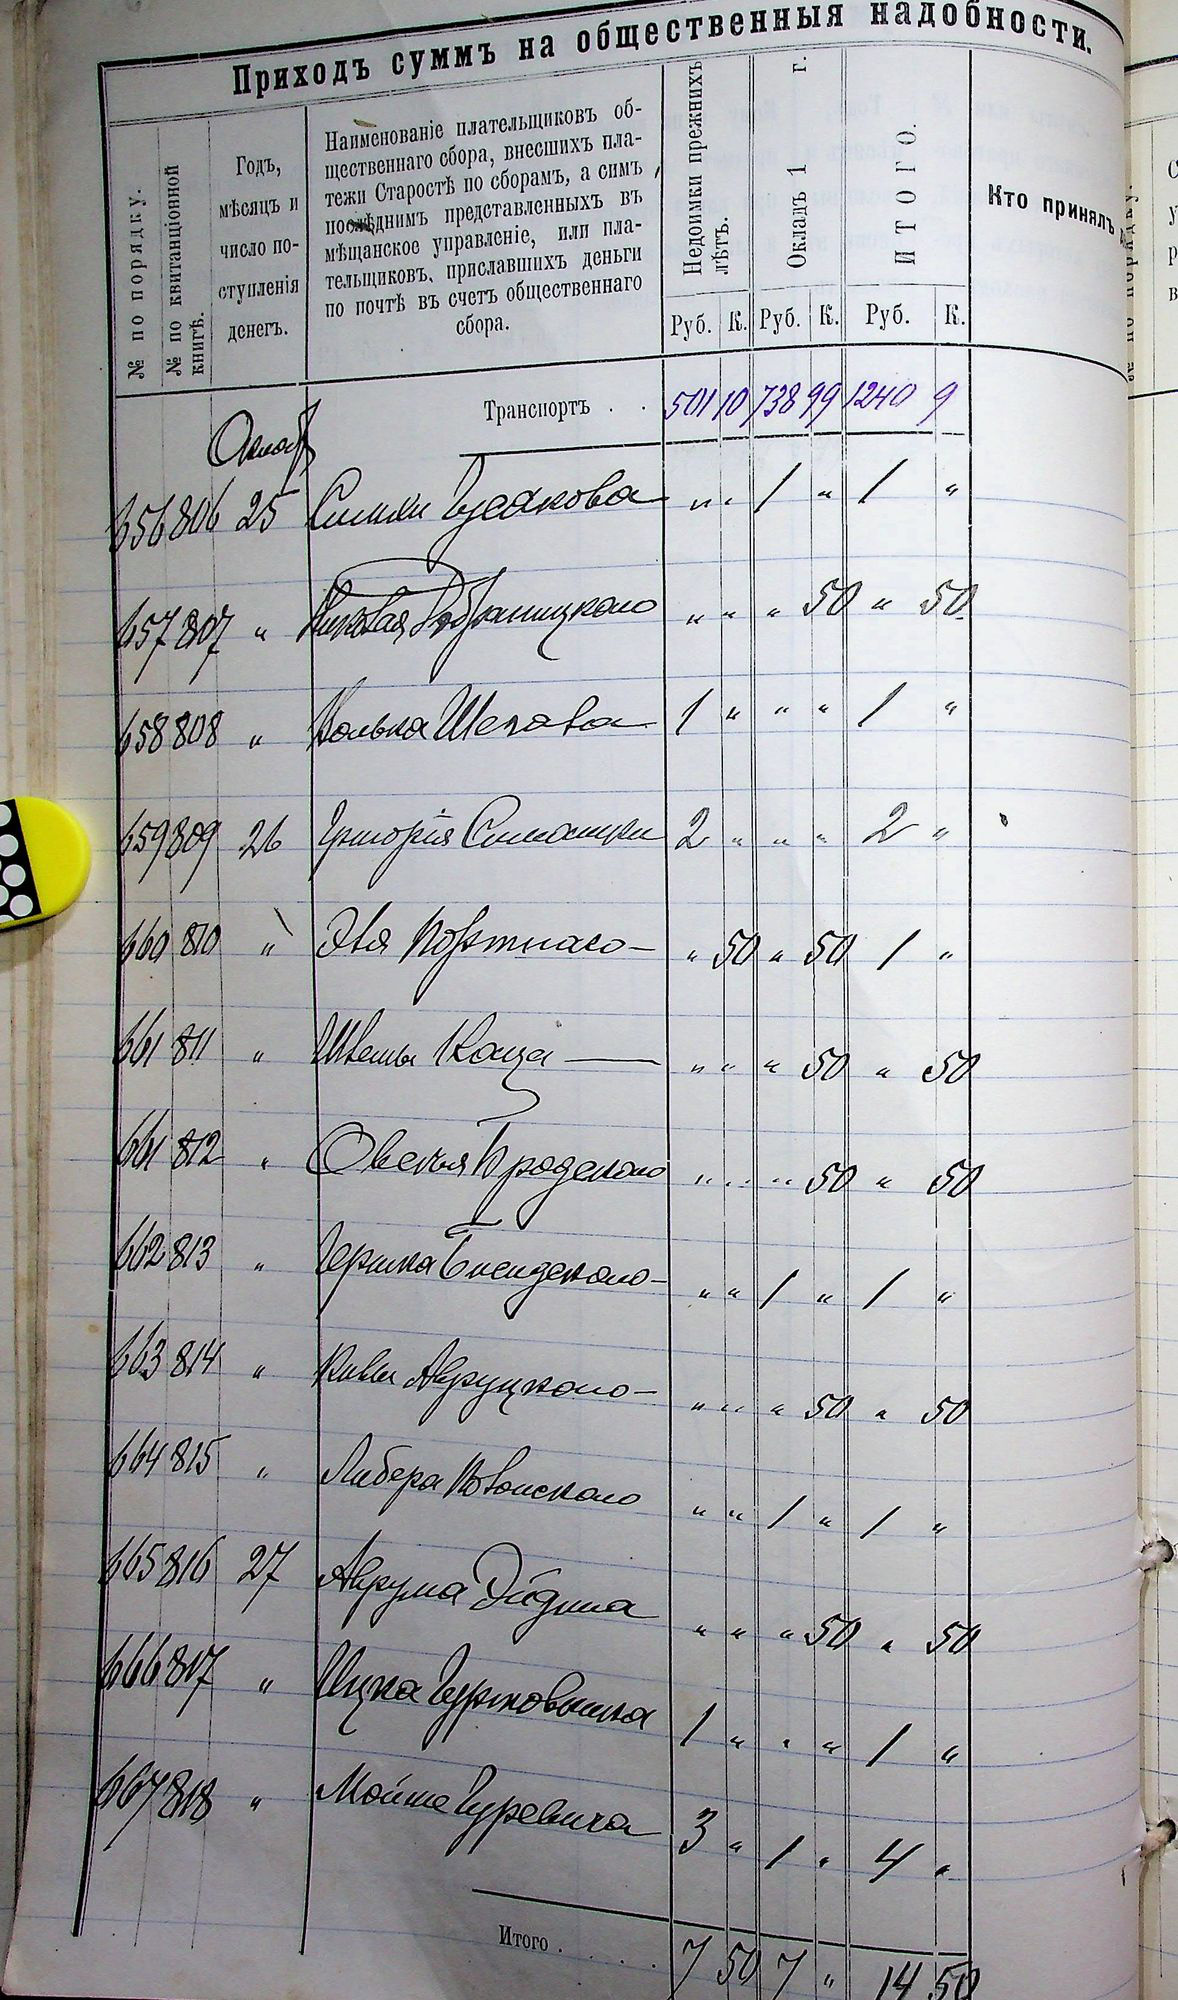 Приходъ суммъ на общественныя надобности.
№ по порядку.
№ по квитанціонной книгѣ.
Годъ,
мѣсяцъ и
число по-
ступленія
денегъ.
Наименованіе плательщиковъ об-
щественнаго сбора, внесшихъ пла-
тежи Старостѣ по сборамъ, а симъ
послѣднимъ представленныхъ въ
мѣщанское управленіе, или пла-
тельщиковъ, приславшихъ деньги
по почтѣ въ счетъ общественнаго
сбора.
Недоимки прежнихъ лѣтъ.
Окладъ 1 г.
ИТОГО.
Кто принялъ
Руб. К. Руб. К. Руб. К.
Транспортъ . . 501 10 738 99 1240 9
656 806 25 Гусакова „ „ 1 „ 1 „
657 807 „ „ „ „ 50 „ 50
658 808 „ 1 „ „ „ 1 „
659 809 26 Григорія 2 „ „ „ 2 „
660 810 „ Эля — „ 50 „ 50 1 „
661 811 „ Каца — „ „ „ 50 „ 50
661 812 „ Овсея Бродского „ „ „ 50 „ 50
662 813 „ Гершка — „ „ 1 „ 1 „
663 814 „ Кивы Авруцкого — „ „ „ 50 „ 50
664 815 „ Либера „ „ 1 „ 1 „
665 816 27 Аврума Эйдина „ „ „ 50 „ 50
666 817 „ Ицка 1 „ „ „ 1 „
667 818 „ Мойше Гуревича 3 „ 1 „ 4 „
Итого . . . . 7 50 7 „ 14 50